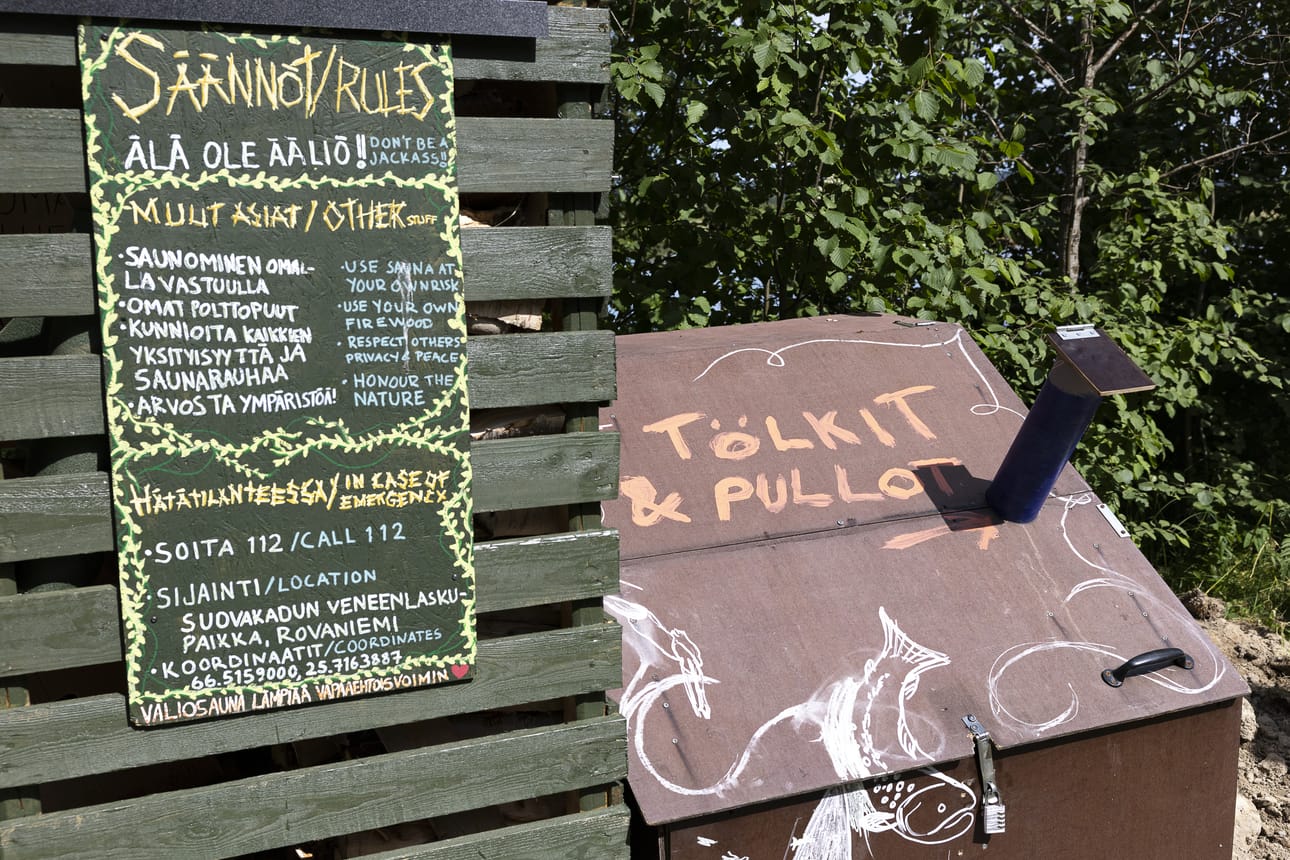 SÄÄNNÖT/RULES
ÄLÄ OLE ÄÄLIÖ! DON'T BE A
JACKASS!!
MUUT ASIAT/OTHER STUFF
·SAUNOMINEN OMAL-
LA VASTUULLA
·OMAT POLTTOPUUT
·KUNNIOITA KAIKKIEN
YKSITYISYYTTÄ JA
SAUNARAUHAA
·ARVOSTA YMPÄRISTÖÄ!
·USE SAUNA AT
YOUR OWN RISK
·USE YOUR OWN
FIREWOOD
·RESPECT OTHERS
PRIVACY & PEACE
·HONOUR THE
NATURE
HÄTÄTILANTEESSA/IN CASE OF
EMERGENCY
·SOITA 112/CALL 112
·SIJAINTI/LOCATION
SUOVAKADUN VENEENLASKU-
PAIKKA, ROVANIEMI
·KOORDINAATIT/COORDINATES
66.5159000, 25.7163887
VALIOSAUNA LÄMPIÄÄ VAPAAEHTOISVOIMIN
TÖLKIT
& PULLOT